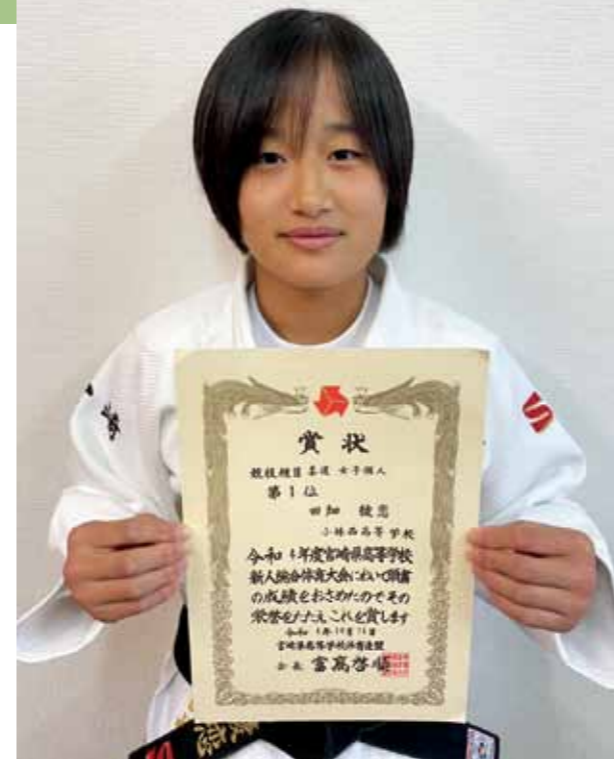 賞状
競技種目 柔道 女子個人
第1位
小林西高等学校
令和4年度宮崎県高等学校
新人総合体育大会において頭書
の成績をおさめたのでその
栄誉をたたえこれを賞します
宮崎県高等学校体育連盟
会長 富高啓順